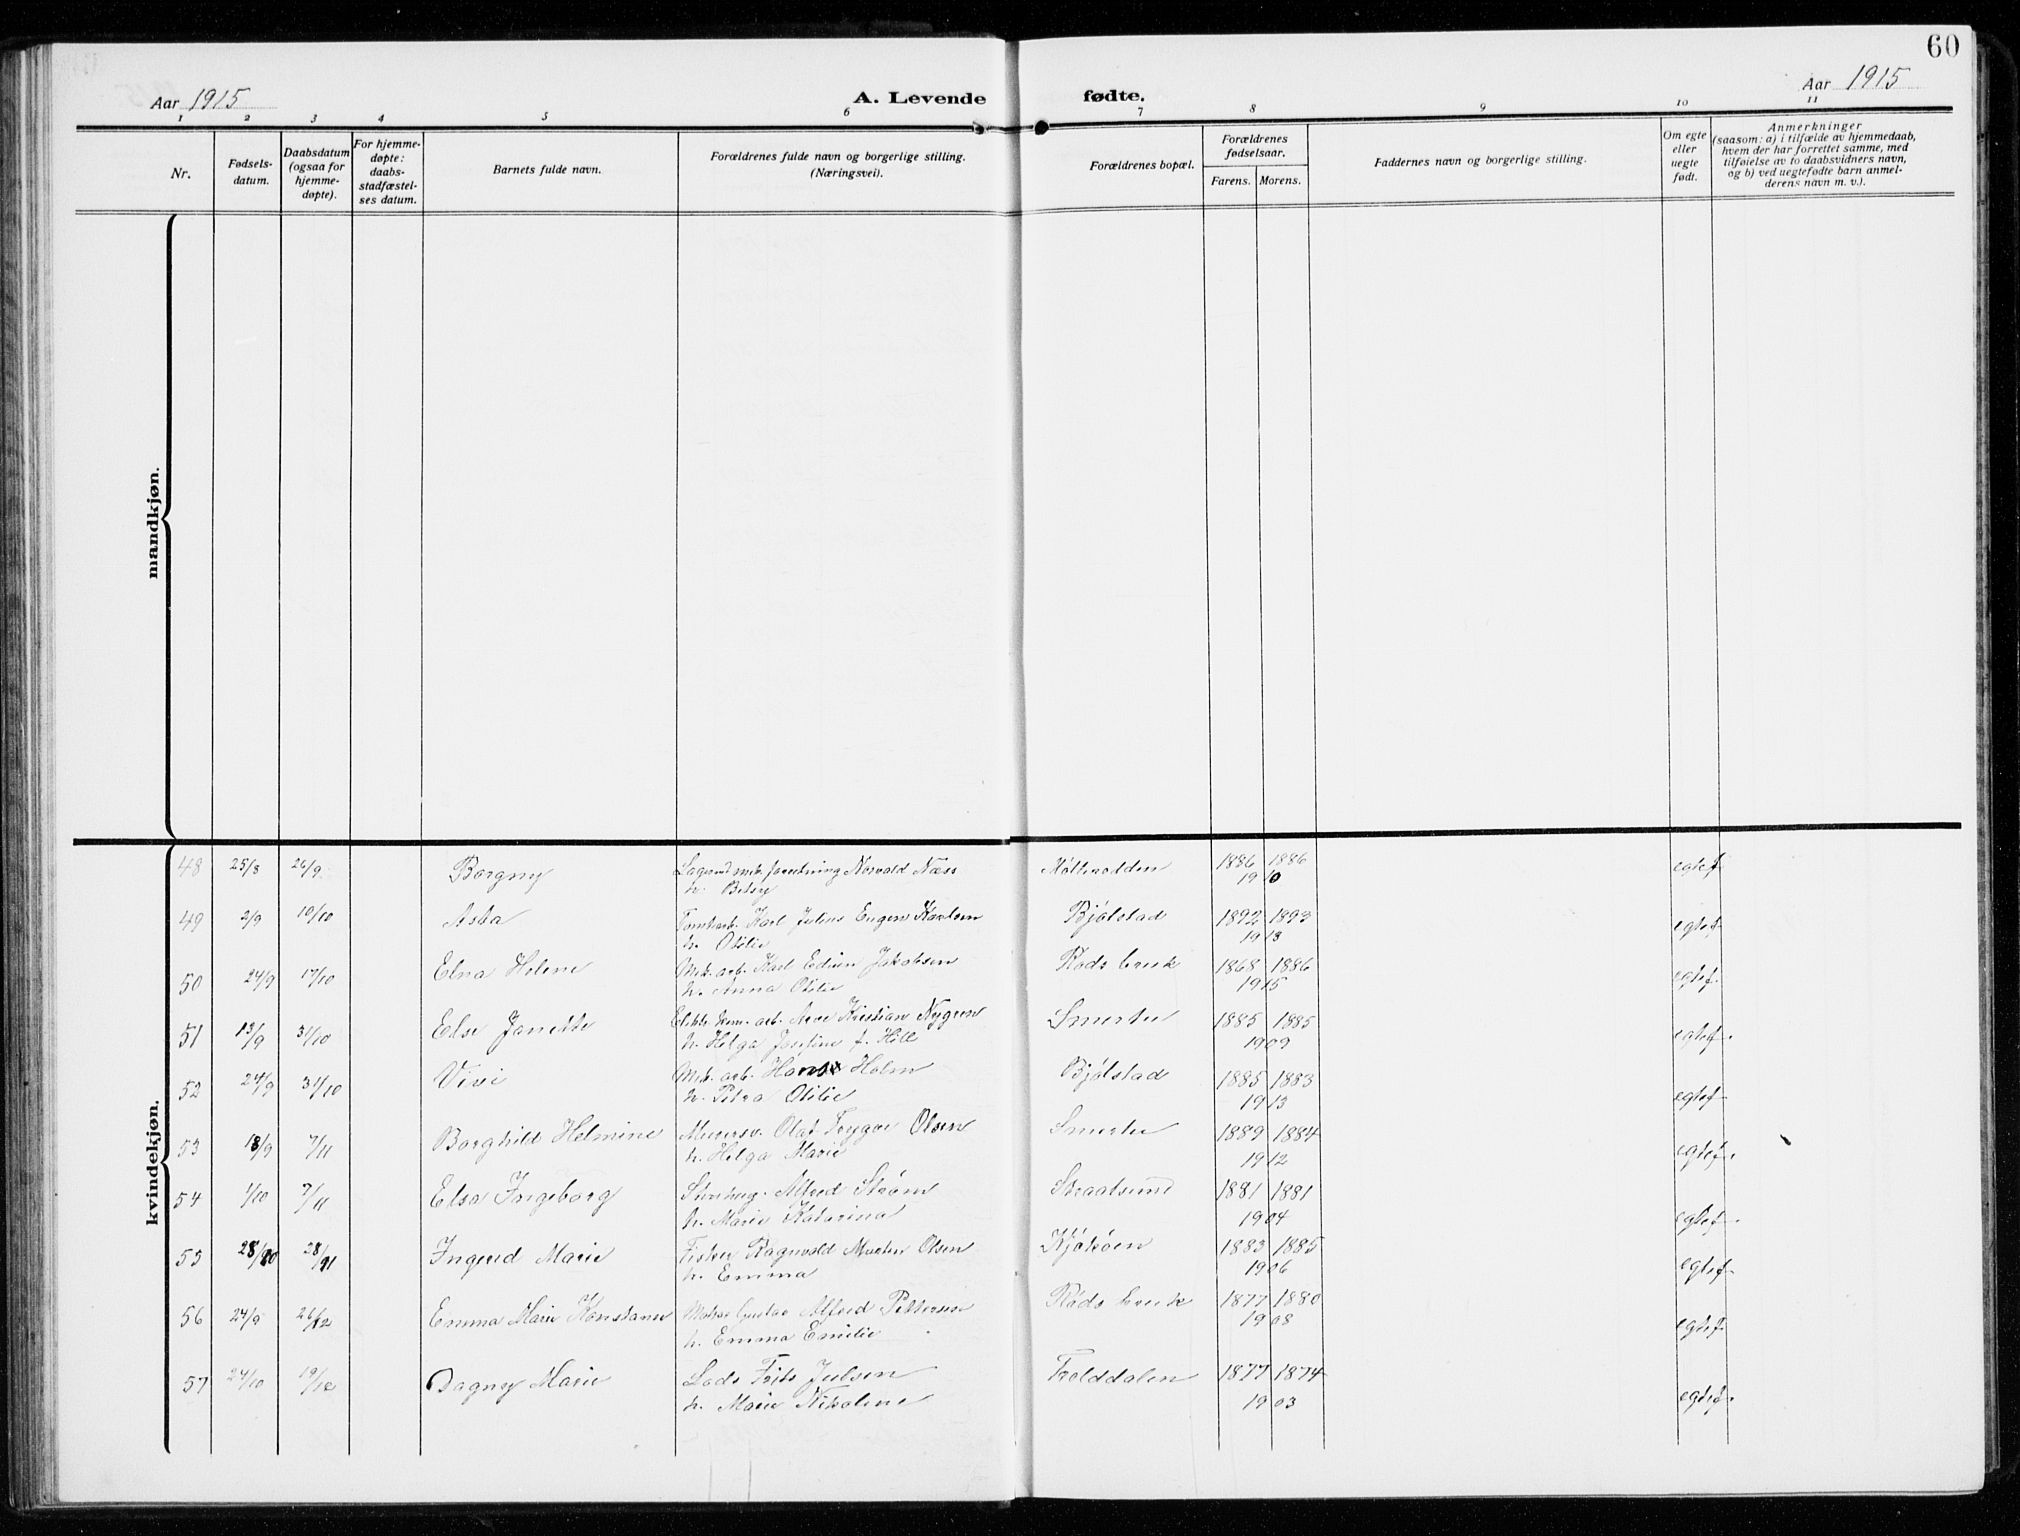 60
Aar 1915
A. Levende fødte.
Aar 1915
1 2 3 4 5 6 7 8 9 10 11
Nr.
Fødsels-
datum.
Daabsdatum
(ogsaa for
hjemme-
døpte).
For hjemme-
døpte:
daabs-
stadfæstel-
ses datum.
Barnets fulde navn.
Forældrenes fulde navn og borgerlige stilling.
(Næringsvei).
Forældrenes bopæl.
Forældrenes
fødselsaar.
Farens. Morens.
Faddernes navn og borgerlige stilling.
Om egte
eller
uegte
født.
Anmerkninger
(saasom: a) i tilfælde av hjemmedaab,
hvem der har forrettet samme, med
tilføielse av to daabsvidners navn,
og b) ved uegtefødte barn anmel-
derens navn m. v.).
mandkjøn.
kvindekjøn.
48 25/8 26/9 Borgny Norvald Næss 1886 1886 egtef
h. Betsy 1910
49 2/9 10/10 Asta Karl Julius Eugen Karlsen Bjølstad 1892 1893 egtef
h. Otilie 1913
50 24/9 17/10 Elna Helene Mek. arb. Karl Edvin Jakobsen Røds bruk 1868 1886 egtef.
h. Anna Otilie 1915
51 13/9 31/10 Else Janette arb. Kristian Nygren Smertu 1885 1885 egtef.
h. Helga Josefine f. Hill 1909
52 24/9 31/10 Vivi Mek. arb. Hans Holm Bjølstad 1885 1883 egtef
h. Petra Otilie 1913
53 18/9 7/11 Borghild Helmine Murersv. Olaf Trygve Olsen Smertu 1889 1884 egtef.
h. Helga Marie 1912
54 1/10 7/11 Elsa Ingeborg Stenhug. Alfred Strøm Straalsund 1881 1881 egtef.
h. Marie Katarina 1904
55 28/10 28/11 Ingerid Marie Fisker Ragnvald Martin Olsen Kjøkøen 1883 1885 egtef.
h. Emma 1906
56 24/9 26/12 Emma Marie Konstanse Gustav Alfred Pettersen Røds bruk 1877 1880 egtef.
h. Emma Emilie 1908
57 24/10 19/12 Dagny Marie Lods Frits Julsen Trolddalen 1877 1874 egtef.
h. Marie Nikoline 1903